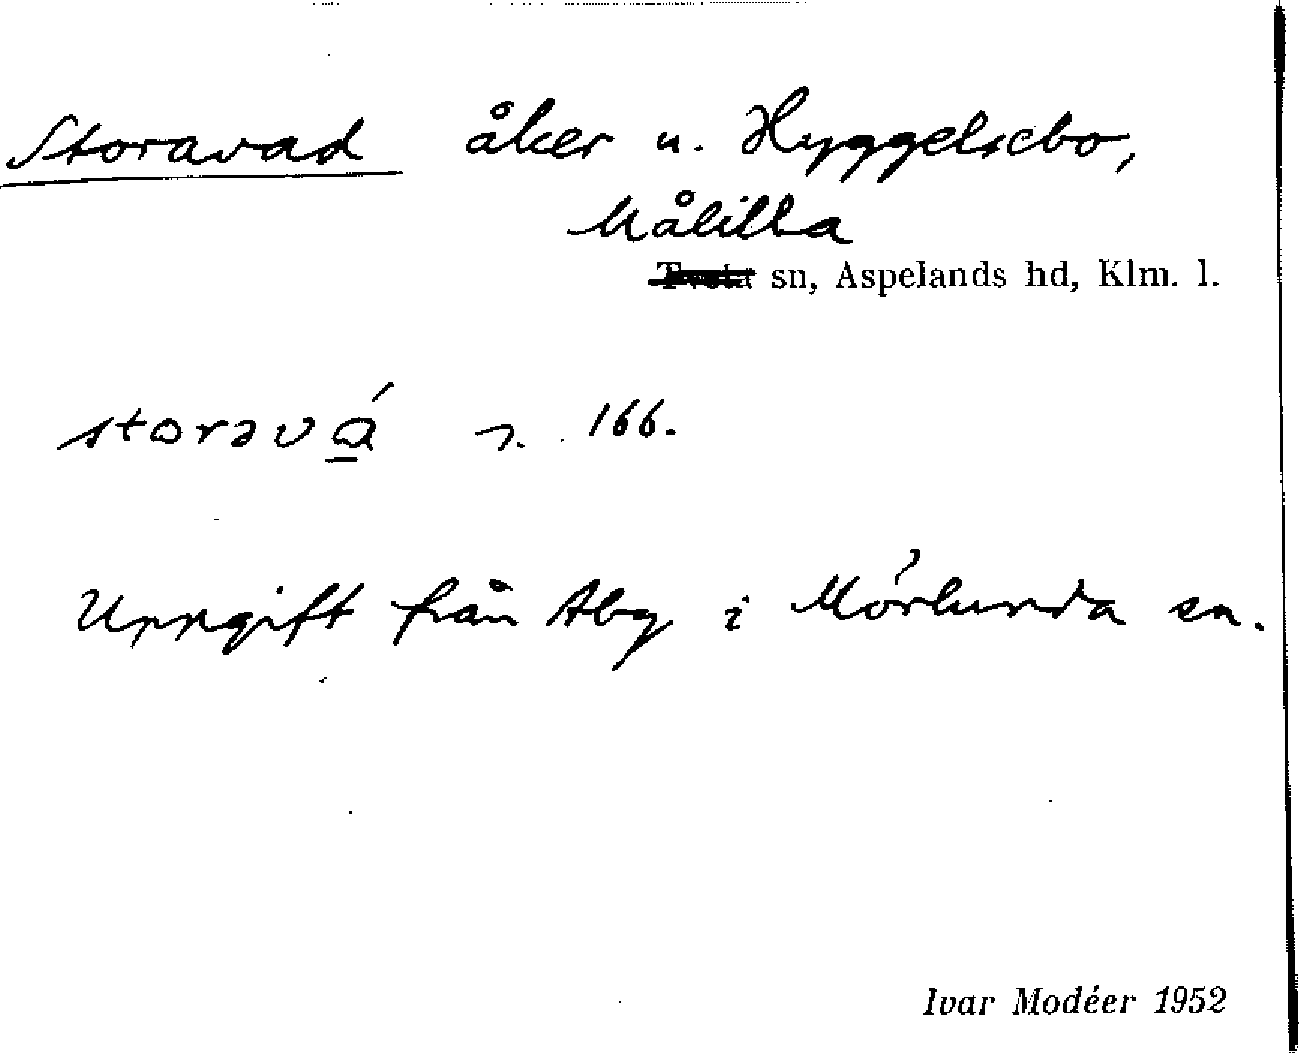 Storavad åker u. Hyggelsebo,
Målilla
Tveta sn, Aspelands hd, Klm. l.
storavá n. 166.
Uppgift från Åby i Mörlunda sn.
Ivar Modéer 1952